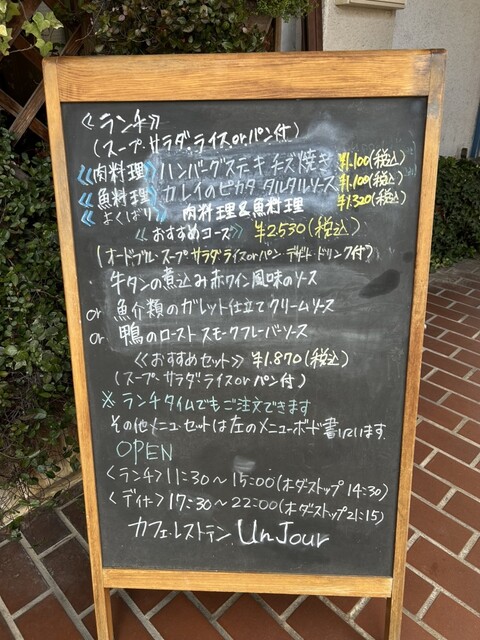 ≪ランチ≫
(スープ・サラダ・ライスorパン付)
≪肉料理≫ ハンバーグステーキ チーズ焼き ¥1.100(税込)
≪魚料理≫ カレイのピカタ タルタルソース ¥1.100(税込)
≪よくばり≫ 肉料理&魚料理 ¥1.320(税込)
≪おすすめコース≫ ¥2.530(税込)
(オードブル・スープ・サラダ・ライスorパン・デザート・ドリンク付)
牛タンの煮込み赤ワイン風味のソース
or 魚介類のガレット仕立てクリームソース
or 鴨のロースト スモークフレーバーソース
≪おすすめセット≫ ¥1.870(税込)
(スープ・サラダ・ライスorパン付)
※ランチタイムでもご注文できます
その他メニュー・セットは左のメニューボード書いています.
OPEN
<ランチ>11:30〜15:00(オーダーストップ14:30)
<ディナー>17:30〜22:00(オーダーストップ21:15)
カフェ・レストラン Un Jour